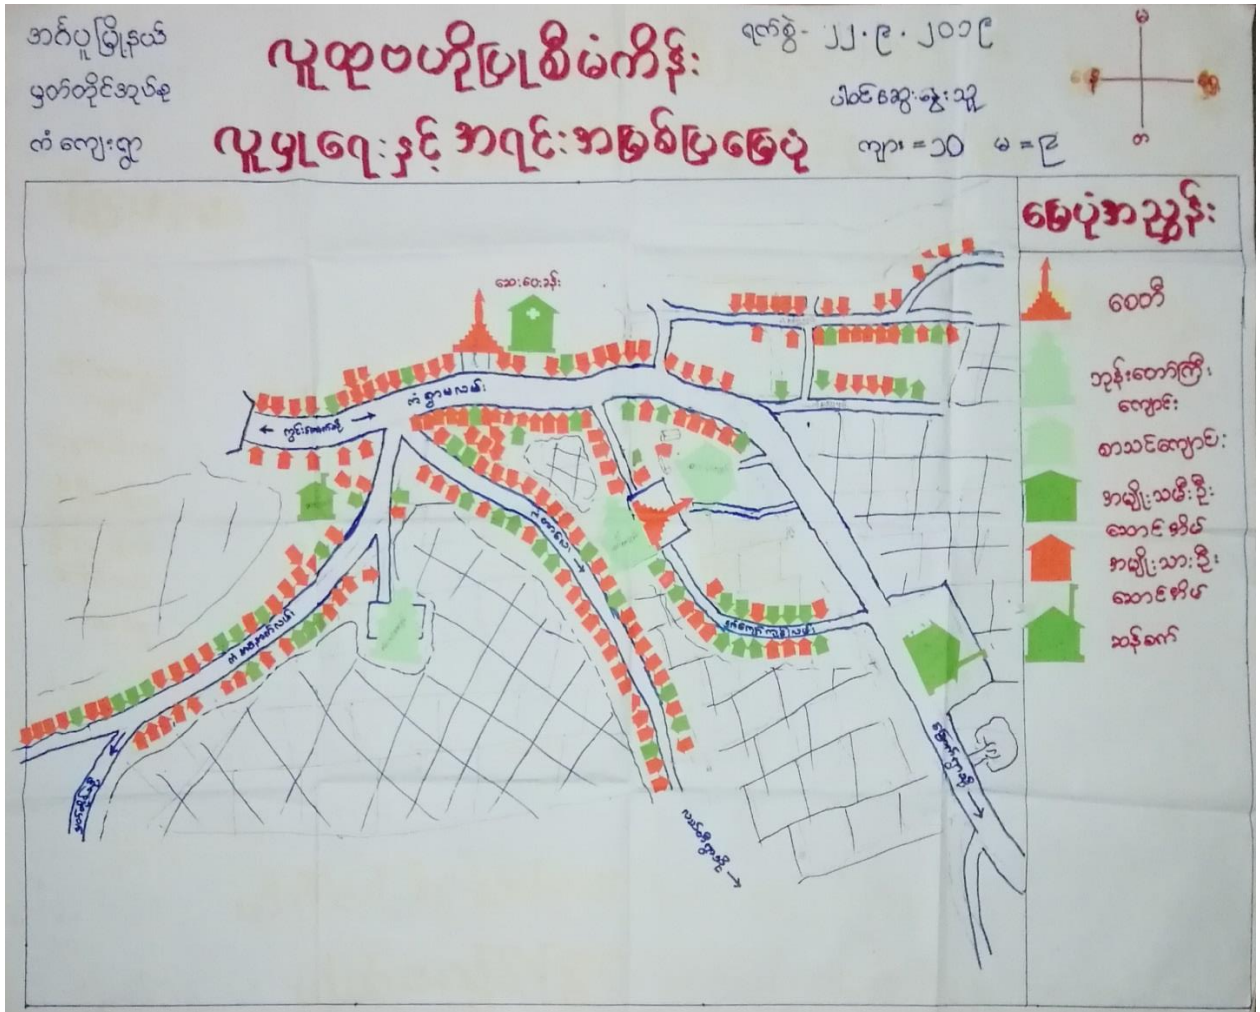 အင်္ဂပူမြို့နယ်
မှတ်တိုင်အုပ်စု
ကံကျေးရွာ
လူထုဗဟိုပြုစီမံကိန်း
လူမှုရေးနှင့် အရင်းအမြစ်ပြမြေပုံ
ရက်စွဲ - ၂၂.၉.၂၀၁၉
ပါဝင်ဆွေးနွေးသူ
ကျား = ၁၀ မ = ၉
မြေပုံအညွှန်း
စေတီ
ဘုန်းတော်ကြီး
ကျောင်း
စာသင်ကျောင်း
အမျိုးသမီးဦး
ဆောင်အိမ်
အမျိုးသားဦး
ဆောင်အိမ်
ဆန်စက်
ဆေးပေးခန်း
ကံရွာမလမ်း